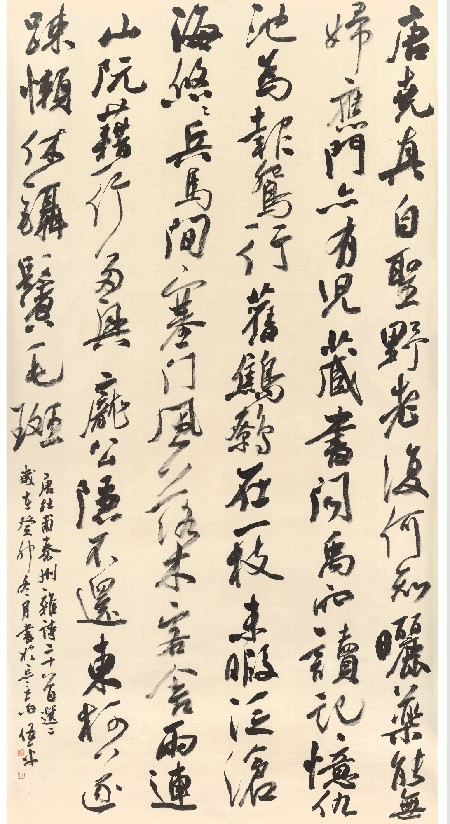 唐堯真自聖野老復何知曬藥能無
婦應門亦有兒藏書聞禹穴讀記憶仇
池為報鴛行舊鷦鷯在一枝未暇泛滄
海悠悠兵馬間塞门風落木客舍雨連
山阮藉行多興龐公隱不還東柯遂
踈懶休鑷鬢毛斑
唐杜甫秦州雜詩二十首選二
歲在癸卯冬月書於